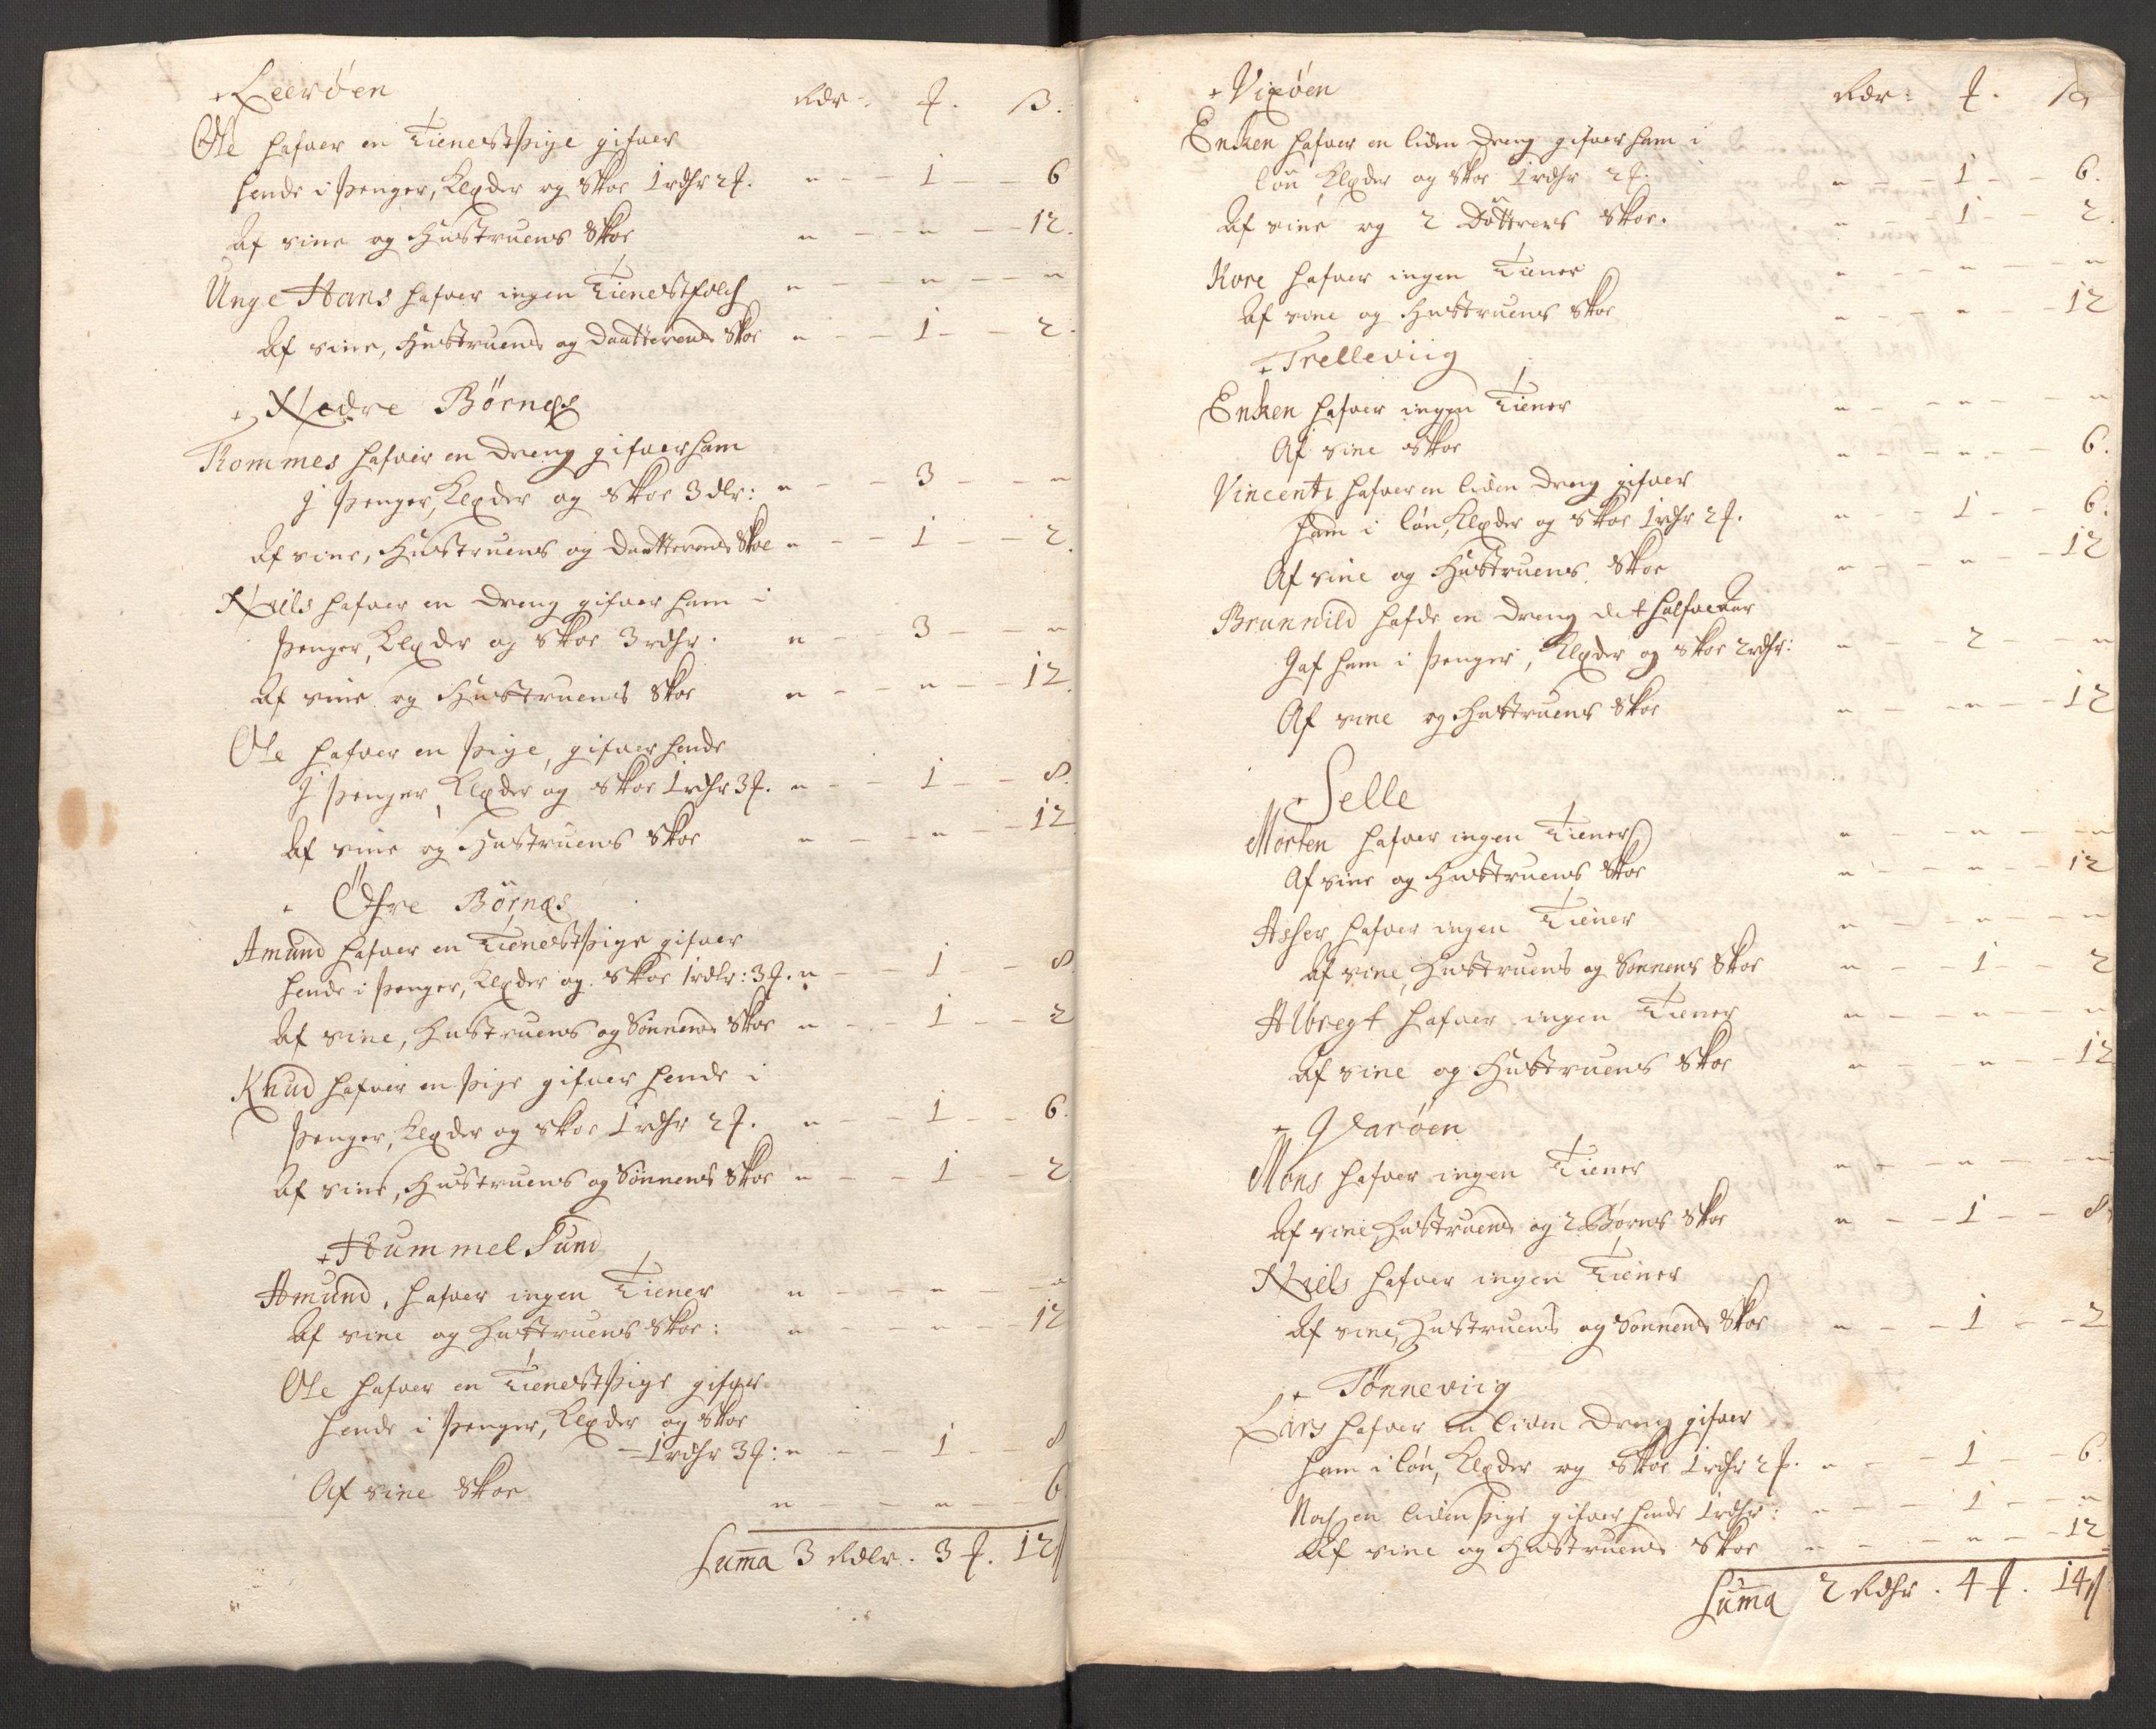 + Leerøen   Rdr: ⨍. ß.
Ole hafver en Tienestpige gifver
hende i penger, Klæder og Skoe 1 rdhr 2 ⨍. " — — 1 — — 6
Af sine og Hustruens Skoe " — — " — — 12.
Unge Hans hafver ingen Tienestfolch " — — " — — "
Af sine, Hustruens og Daatterens Skoe " — — 1 — — 2.
+ Nedre Börnæs
Rommes hafver en dreng gifver ham
J penger, Klæder og Skoe 3 dlr: " — — 3 — — "
Af sine, Hustruens og Daatterens Skoe " — — 1 — — 2.
Niels hafver en dreng gifver ham i
penger, Klæder og Skoe 3 rdhr. " — — 3 — — "
Af sine og Hustruens Skoe " — — " — — 12.
Ole hafver en pige, gifver hende
J penger, Klæder og Skoe 1 rdhr 3 ⨍. " — — 1 — — 8.
Af sine og Hustruens Skoe " — — " — — 12
+ Öfre Börnæs
Amund hafver en Tienestpige gifver
hende i penger, Klæder og Skoe 1 rdlr: 3 ⨍. " — — 1 — — 8
Af sine, Hustruens og Sønnens Skoe " — — 1 — — 2
Knud hafver en pige gifver hende i
penger, Klæder og Skoe 1 rdhr 2 ⨍. " — — 1 — — 6.
Af sine, Hustruens og Sønnens Skoe " — — 1 — 2
+ Hummel Sund
Amund, hafver ingen Tiener " — — " — — "
Af sine og Hustruens Skoe: " — — " — — 12
Ole hafver en Tienestpige gifver
hende i penger, Klæder og Skoe
— 1 rdhr 3 ⨍: " — — 1 — — 8
Af sine Skoe " — — " — — 6
Summa 3 Rdlr. 3 ⨍. 12 ß
+ Vixøen   Rdr: ⨍. ß
Enken hafver en liden dreng gifver ham i
løn Klæder og Skoe 1 rdhr 2 ⨍. " — — 1 — — 6.
Af sine og 2 Døttrers Skoe. " — — 1 — — 2.
Kore hafver ingen Tiener " — — " — — "
Af sine og Hustruens Skoe " — — " — — 12
+ Trelleviig
Enken hafver ingen Tiener " — — " — — "
Af sine Skoe " — — " — — 6.
Vincents hafver en liden dreng gifver
ham i løn, Klæder og Skoe 1 rdhr 2 ⨍. " — — 1 — — 6.
Af sine og Hustruens Skoe " — — " — — 12
Brunnild hafde en dreng det halfve Aar
Gaf ham i penger, Klæder og Skoe 2 rdhr: " — — 2 — — "
Af sine og Hustruens Skoe " — — " — — 12
+ Selle
Morten hafver ingen Tiener " — — " — — "
Af sine og Hustruens Skoe " — — " — — 12
Asser hafver ingen Tiener " — — " — — "
Af sine, Hustruens og Sønnens Skoe " — — 1 — — 2
Albregt hafver ingen Tiener " — — " — — "
Af sine og Hustruens Skoe " — — " — — 12
+ Qvarøen
Mons hafver ingen Tiener " — — " — — "
Af sine Hustruens og 2 Børns Skoe " — — 1 — — 8.
Niels hafver ingen Tiener
Af sine, Hustruens og Sønnens Skoe " — — 1 — — 2
+ Tönneviig
Lars hafver en liden Dreng gifver
ham i løn, Klæder og Skoe 1 rdhr 2 ⨍. " — — 1 — — 6.
Noch en liden pige gifver hende 1 rdhr: " — — 1 — — "
Af sine og Hustruens Skoe " — — " — — 12
Summa 2 Rdhr. 4 ⨍. 14 ß